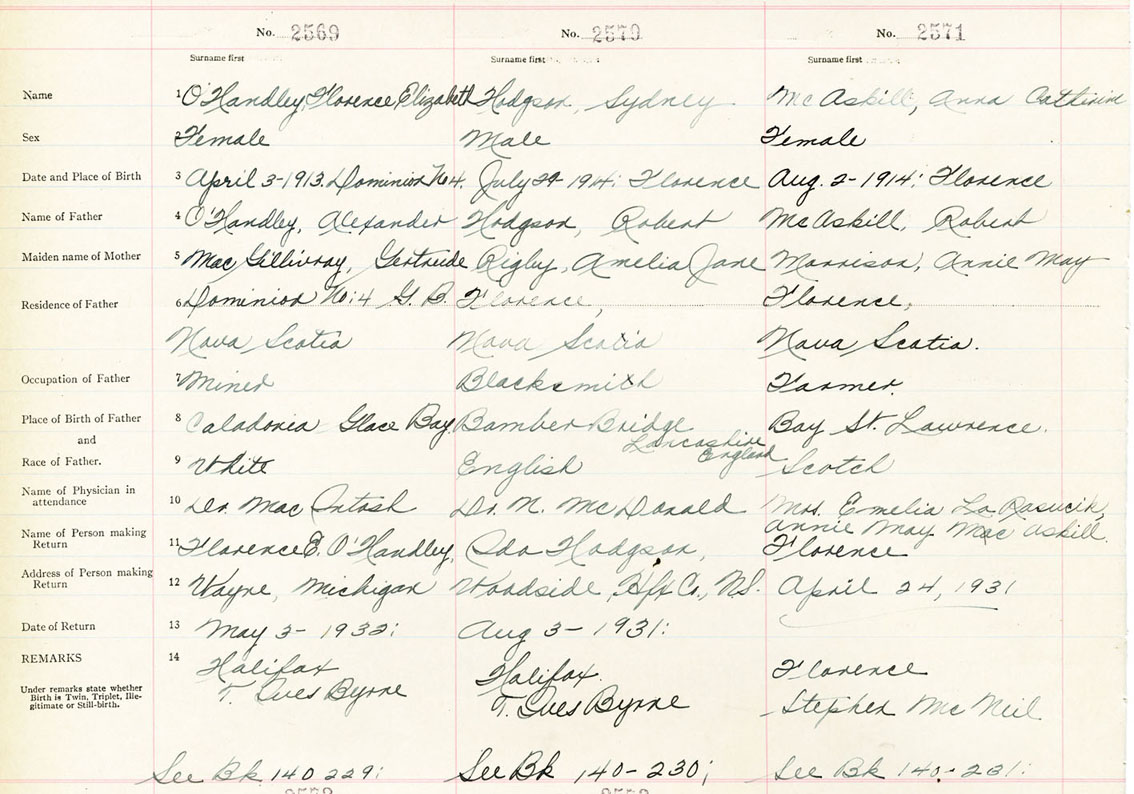 No. 2569 No. 2570 No. 2571
Surname first Surname first Surname first
Name 1 O'Handley, Florence Elizabeth Hodgson, Sydney McAskill, Anna Catherine
Sex 2 Female Male Female
Date and Place of Birth 3 April 3-1913. Dominion No 4. July 29 1914: Florence Aug. 2-1914: Florence
Name of Father 4 O'Handley, Alexander Hodgson, Robert McAskill, Robert
Maiden name of Mother 5 MacGillivray, Gertrude Rigby, Amelia Jane Morrison, Annie May
Residence of Father 6 Dominion No: 4 G. B. Florence, Florence,
Nova Scotia Nova Scotia Nova Scotia.
Occupation of Father 7 Miner Blacksmith Farmer.
Place of Birth of Father 8 Caladonia Glace Bay Bamber Bridge Bay St. Lawrence.
and Lancashire
England
Race of Father. 9 White English Scotch
Name of Physician in attendance 10 Dr. MacIntosh Dr. N. McDonald Mrs. Emelia
Annie May MacAskill.
Name of Person making Return 11 Florence E. O'Handley, Ada Hodgson, Florence
Address of Person making Return 12 Wayne, Michigan Woodside, Hfx Co., N.S. April 24, 1931
Date of Return 13 May 3-1932: Aug 3-1931:
REMARKS 14 Halifax Halifax. Florence
Under remarks state whether Birth is Twin, Triplet, Illegitimate or Still-birth. T. Ives Byrne T. Ives Byrne Stephen McNeil
See Bk 140 229: See Bk 140-230; See Bk 140-231: